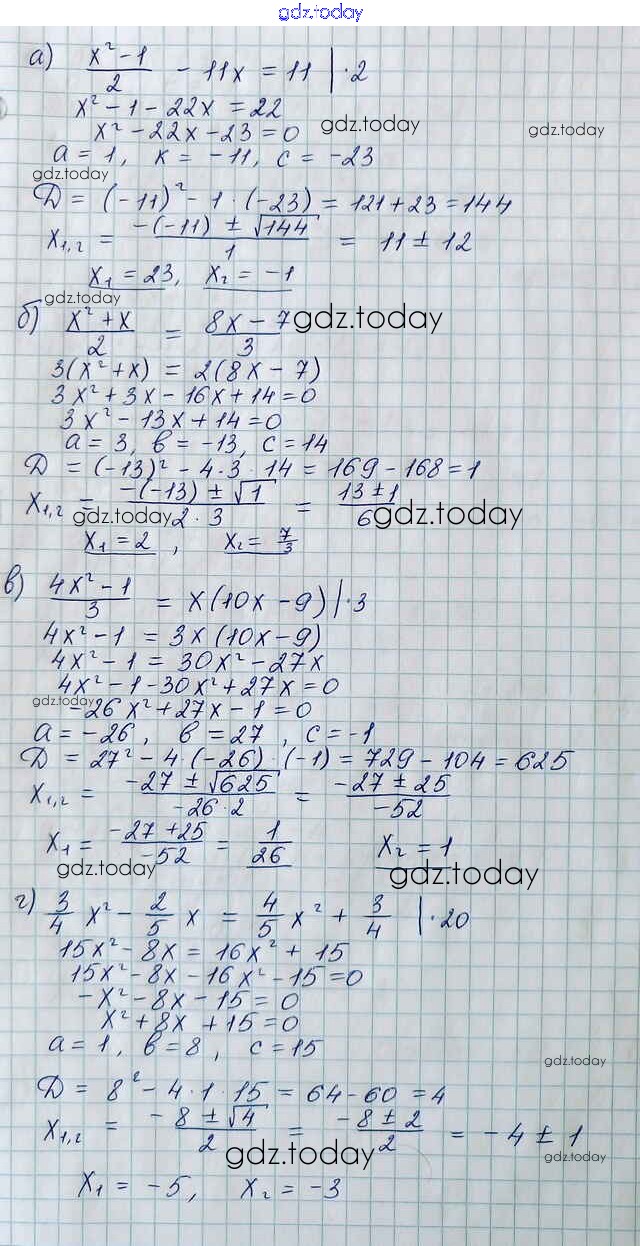 gdz.today
а) (x² - 1)/2 - 11x = 11 | · 2
x² - 1 - 22x = 22
x² - 22x - 23 = 0 gdz.today gdz.today
a = 1, к = -11, c = -23
gdz.today
D = (-11)² - 1 · (-23) = 121 + 23 = 144
x₁,₂ = (-(-11) ± √144)/1 = 11 ± 12
x₁ = 23, x₂ = -1
gdz.today
б) (x² + x)/2 = (8x - 7)/3 gdz.today
3(x² + x) = 2(8x - 7)
3x² + 3x - 16x + 14 = 0
3x² - 13x + 14 = 0
a = 3, в = -13, c = 14
D = (-13)² - 4 · 3 · 14 = 169 - 168 = 1
x₁,₂ = (-(-13) ± √1)/(2 · 3) = (13 ± 1)/6
gdz.today gdz.today
x₁ = 2, x₂ = 7/3
в) (4x² - 1)/3 = x(10x - 9) | · 3
4x² - 1 = 3x(10x - 9)
4x² - 1 = 30x² - 27x
4x² - 1 - 30x² + 27x = 0
gdz.today
-26x² + 27x - 1 = 0
a = -26, в = 27, c = -1
D = 27² - 4 · (-26) · (-1) = 729 - 104 = 625
x₁,₂ = (-27 ± √625)/(-26 · 2) = (-27 ± 25)/(-52)
x₁ = (-27 + 25)/(-52) = 1/26 x₂ = 1
gdz.today gdz.today
г) 3/4 x² - 2/5 x = 4/5 x² + 3/4 | · 20
15x² - 8x = 16x² + 15
15x² - 8x - 16x² - 15 = 0
-x² - 8x - 15 = 0
x² + 8x + 15 = 0
a = 1, в = 8, c = 15
gdz.today
D = 8² - 4 · 1 · 15 = 64 - 60 = 4
x₁,₂ = (-8 ± √4)/2 = (-8 ± 2)/2 = -4 ± 1
gdz.today gdz.today
x₁ = -5, x₂ = -3